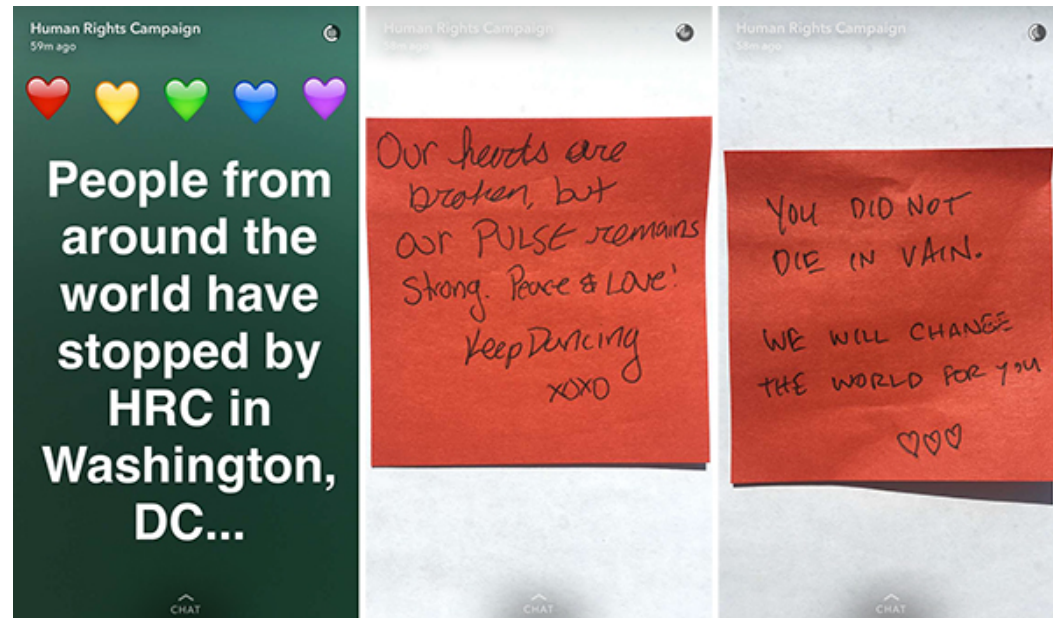 Human Rights Campaign
59m ago
People from
around the
world have
stopped by
HRC in
Washington,
DC...
CHAT
Human Rights Campaign
58m ago
Our hearts are
broken, but
our PULSE remains
Strong. Peace & Love!
Keep Dancing
XOXO
CHAT
Human Rights Campaign
58m ago
YOU DID NOT
DIE IN VAIN.
WE WILL CHANGE
THE WORLD FOR YOU
CHAT